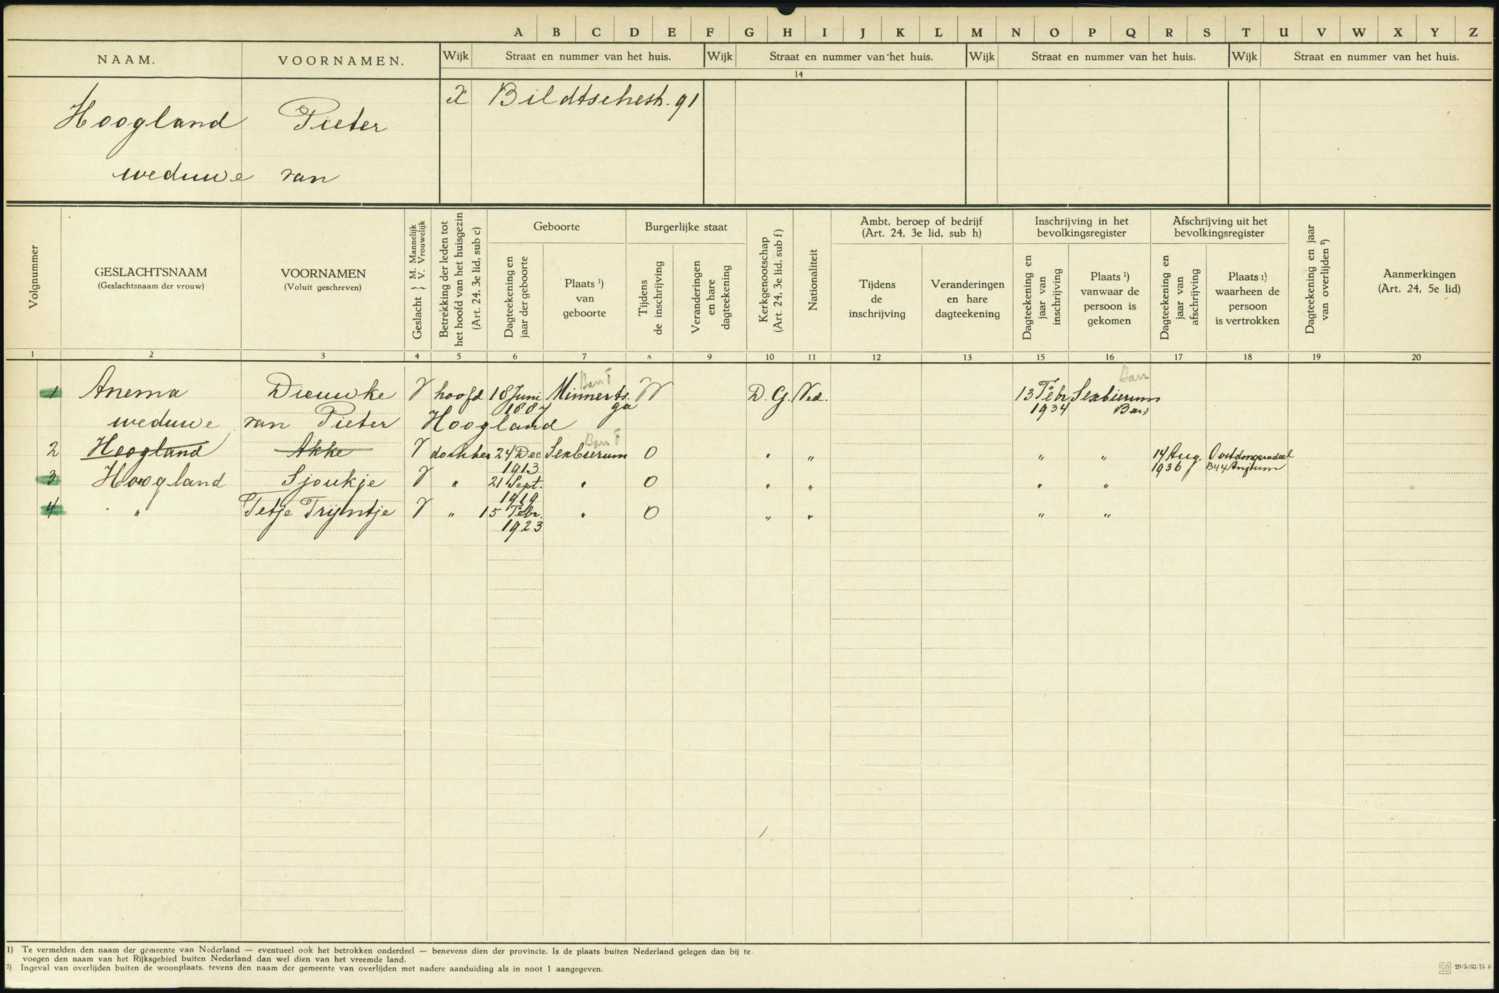 A B C D E F G H I J K L M N O P Q R S T U V W X Y Z
NAAM. VOORNAMEN. Wijk Straat en nummer van het huis. Wijk Straat en nummer van het huis. Wijk Straat en nummer van het huis. Wijk Straat en nummer van het huis.
14
X Bildtschestr. 91
Hoogland Pieter
weduwe van
Volgnummer
GESLACHTSNAAM
(Geslachtsnaam der vrouw)
VOORNAMEN
(Voluit geschreven)
Geslacht M. Mannelijk V. Vrouwelijk
Betrekking der leden tot
het hoofd van het huisgezin
(Art. 24, 3e lid, sub c)
Geboorte
Dagteekening en
jaar der geboorte
Plaats ¹)
van
geboorte
Burgerlijke staat
Tijdens
de inschrijving
Veranderingen
en hare
dagteekening
Kerkgenootschap
(Art. 24, 3e lid, sub f)
Nationaliteit
Ambt, beroep of bedrijf
(Art. 24, 3e lid, sub h)
Tijdens
de
inschrijving
Veranderingen
en hare
dagteekening
Inschrijving in het
bevolkingsregister
Dagteekening en
jaar van
inschrijving
Plaats ¹)
vanwaar de
persoon is
gekomen
Afschrijving uit het
bevolkingsregister
Dagteekening en
jaar van
afschrijving
Plaats ¹)
waarheen de
persoon
is vertrokken
Dagteekening en jaar
van overlijden ²)
Aanmerkingen
(Art. 24, 5e lid)
1 2 3 4 5 6 7 8 9 10 11 12 13 15 16 17 18 19 20
1 Anema Dieuwke V hoofd 18 Juni Minnerts W D.G. Ned. 13 Febr Sexbierum
1887 ga 1934 Bar
weduwe van Pieter Hoogland
2 Hoogland Akke V dochter 24 Dec Sexbierum O " " " " 14 Aug. Oostdongeradeel
1913 1936 B44 Anjum
3 Hoogland Sjoukje V " 21 Sept. " O " " " "
1919
4 " Tetje Tryntje V " 15 Febr. " O " " " "
1923
1) Te vermelden den naam der gemeente van Nederland — eventueel ook het betrokken onderdeel — benevens dien der provincie. Is de plaats buiten Nederland gelegen dan bij te
voegen den naam van het Rijksgebied buiten Nederland dan wel dien van het vreemde land.
2) Ingeval van overlijden buiten de woonplaats, tevens den naam der gemeente van overlijden met nadere aanduiding als in noot 1 aangegeven.